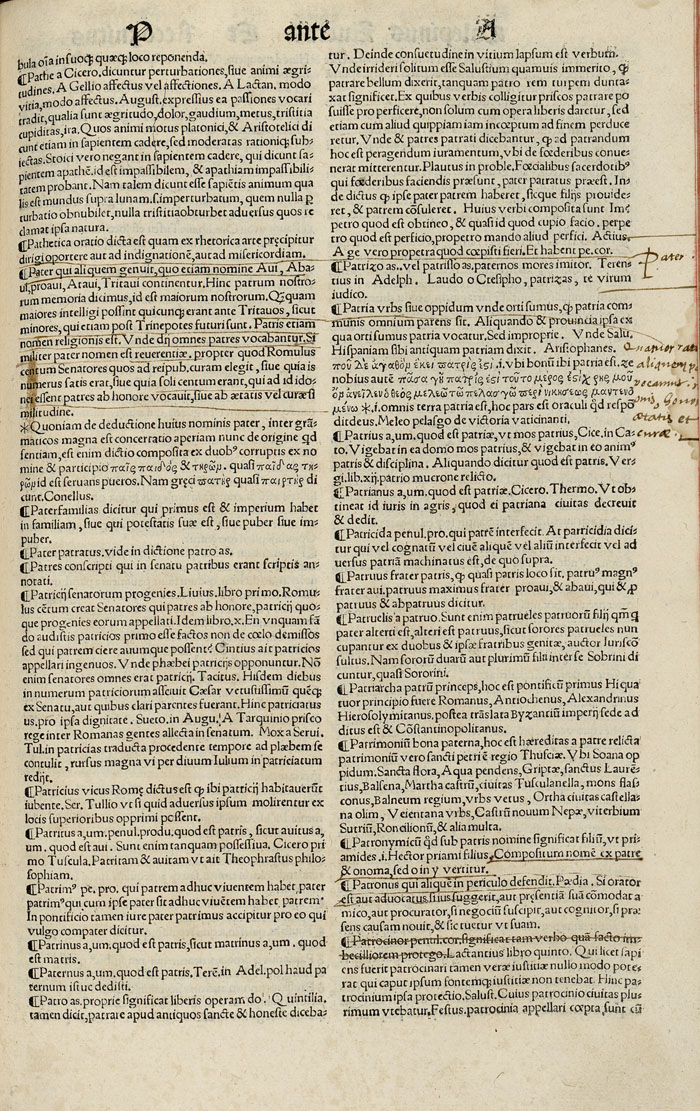 P ante A
bula oīa in suoq; quæq; loco reponenda.
¶Pathe a Cicero. dicuntur perturbationes, siue animi ægri-
tudines. A Gellio affectus vel affectiones. A Lactan. modo
vitia, modo affectus. August. expressius ea passiones vocari
tradit, qualia sunt ægritudo, dolor, gaudium, metus, tristitia
cupiditas, ira. Quos animi motus platonici, & Aristotelici di
cunt etiam in sapientem cadere, sed moderatas rationiq; sub-
iectas. Stoici vero negant in sapientem cadere, qui dicunt sa-
pientem apathē. id est impassibilem, & apathiam impassibili-
tatem probant. Nam talem dicunt esse sapiētis animum qua
lis est mundus supra lunam. s. imperturbatum, quem nulla p
turbatio obnubilet, nulla tristitia obturbet aduersus quos re
clamat ipsa natura.
¶Pathetica oratio dicta est quam ex rhetorica arte præcipitur
dirigi oportere aut ad indignationē, aut ad misericordiam.
¶Pater qui aliquem genuit, quo etiam nomine Aui, Aba-
ui, proaui, Ataui, Tritaui continentur. Hinc patrum nostro-
rum memoria dicimus, id est maiorum nostrorum. Qꝫquam
maiores intelligi possint quicunq; erant ante Tritauos, sicut
minores, qui etiam post Trinepotes futuri sunt. Patris etiam
nomen religionis est. Vnde dij omnes patres vocabantur. Si
militer pater nomen est reuerentiæ. propter quod Romulus
centum Senatores quos ad reipub. curam elegit, siue quia is
numerus satis erat, siue quia soli centum erant, qui ad id ido-
nei essent patres ab honore vocauit, siue ab ætatis vel curæ si
militudine.
*Quoniam de deductione huius nominis pater, inter grā-
maticos magna est concertatio aperiam nunc de origine qd
sentiam, est enim dictio composita ex duobꝰ corruptis ex no
mine & participio παῖς παιδὸς & τηρῶμ. quasi παῖδας τη-
ρῶμ id est seruans pueros. Nam græci πατὴρ quasi παιρτηρ di
cunt. Conellus.
¶Paterfamilias dicitur qui primus est & imperium habet
in familiam, siue qui potestatis suæ est, siue puber siue im-
puber.
¶Pater patratus. vide in dictione patro as.
¶Patres conscripti qui in senatu patribus erant scriptis an-
notati.
¶Patricij senatorum progenies. Liuius. libro primo. Romu-
lus cētum creat Senatores qui patres ab honore, patricij quo-
que progenies eorum appellati. Idem libro. x. En vnquam fā
do audistis patricios primo esse factos non de cœlo demissos
sed qui patrem ciere auumque possent? Cintius ait patricios
appellari ingenuos. Vnde phœbei patricijs opponuntur. Nō
enim senatores omnes erat patricij. Tacitus. Hisdem diebus
in numerum patriciorum asciuit Cæsar vetustissimū quēq;
ex Senatu, aut quibus clari parentes fuerant. Hinc patriciatus
us. pro ipsa dignitate. Sueto. in Augu. A Tarquinio prisco
rege inter Romanas gentes allecta in senatum. Mox a Serui.
Tul. in patricias traducta procedente tempore ad plæbem se
contulit, rursus magna vi per diuum Iulium in patriciatum
redijt.
¶Patricius vicus Romę dictus est q; ibi patricij habitauerūt
iubente. Ser. Tullio vt si quid aduersus ipsum molirentur ex
locis superioribus opprimi possent.
¶Patritus a, um. penul. produ. quod est patris, sicut auitus a,
um. quod est aui. Sunt enim tanquam possessiua. Cicero pri
mo Tuscula. Patritam & auitam vt ait Theophrastus philo-
sophiam.
¶Patrimꝰ pe. pro. qui patrem adhuc viuentem habet. pater
patrimꝰ qui cum ipse pater sit adhuc viuētem habet patremꝰ
In pontificio tamen iure pater patrimus accipitur pro eo qui
vulgo compater dicitur.
¶Patrinus a, um. quod est patris, sicut matrinus a, um. quod
est matris.
¶Paternus a, um. quod est patris. Terē. in Adel. pol haud pa
ternum istuc dedisti.
¶Patro as. proprie significat liberis operam do. Quintilia.
tamen dicit, patrare apud antiquos sancte & honeste diceba-
tur. Deinde consuetudine in vitium lapsum est verbum.
Vnde irrideri solitum esse Salustium quamuis immerito, q;
patrare bellum dixerit, tanquam patro rem turpem dunta-
xat significet. Ex quibus verbis colligitur priscos patrare po
suisse pro perficere, non solum cum opera liberis daretur, sed
etiam cum aliud quippiam iam incœptum ad finem perduce
retur. Vnde & patres patrati dicebantur, q; ad patrandum
hoc est peragendum iuramentum, vbi de fœderibus conue-
nerat mitterentur. Plautus in proble. Fœcialibus sacerdotibꝰ
qui fœderibus faciendis præsunt, pater patratus præest. In-
de dictus q; ipse pater patrem haberet, sicque filijs prouide-
ret, & patrem cōsuleret. Huius verbi composita sunt Im-
petro quod est obtineo, & quasi id quod cupio facio. perpe
tro quod est perficio, propetro mando aliud perfici. Actius.
A ge vero propetra quod cœpisti fieri. Et habent pe. cor.
¶Patrizo as. vel patrisso as, paternos mores imitor. Teren-
tius in Adelph. Laudo o Ctesipho, patrizas, te virum
iudico.
¶Patria vrbs siue oppidum vnde orti sumus, q; patria com-
munis omnium parens sit. Aliquando & prouincia ipsa ex
qua orti sumus patria vocatur. Sed improprie. Vnde Salu.
Hispaniam sibi antiquam patriam dixit. Aristophanes.
¶Patrius a, um. quod est patriæ, vt mos patrius, Cice. in Ca-
to. Vigebat in ea domo mos patrius, & vigebat in eo animꝰ
patris & disciplina. Aliquando dicitur quod est patris. Ver-
gi. lib. xij. patrio mucrone relicto.
¶Patrianus a, um. quod est patriæ. Cicero. Thermo. Vt ob-
tineat id iuris in agris, quod ei patriana ciuitas decreuit
& dedit.
¶Patricida penul. pro. qui patrē interfecit. At parricidia dici-
tur qui vel cognatū vel ciuē aliquē vel aliū interfecit vel ad
uersus patriā machinatus est, de quo supra.
¶Patruus frater patris, q; quasi patris loco sit. patruꝰ magnꝰ
frater aui. patruus maximus frater proaui, & abaui, qui & p
patruus & abpatruus dicitur.
¶Patruelis a patruo. Sunt enim patrueles patruorū filij qm̄ q
pater alterti est, alteri est patruus, sicut sorores patrueles nun
cupantur ex duobus & ipsæ fratribus genitæ, auctor Iuriscō
sultus. Nam sororū duarū aut plurimū filij inter se Sobrini di
cuntur, quasi Sororini.
¶Patriarcha patrū princeps, hoc est pontificū primus Hi qua
tuor principio fuere Romanus, Antiochenus, Alexandrinus
Hierosolymitanus. postea trāslata Byzantiū imperij sede ad
ditus est & Cōstantinopolitanus.
¶Patrimoniū bona paterna, hoc est hæreditas a patre relicta
patrimoniū vero sancti petri ē regio Thusciæ. Vbi Soana op
pidum. Sancta flora, Aqua pendens, Griptæ, sanctus Laurē-
tius, Balsena, Martha castrū, ciuitas Tusculanella, mons flasi
conus, Balneum regium, vrbs vetus, Ortha ciuitas castella-
na olim, Veientana vrbs, Castrū nouum Nepæ, viterbium
Sutriū, Roncilionū, & alia multa.
¶Patronymicū qd sub patris nomine significat filiū, vt pri-
amides. i. Hector priami filius, Compositum nomē ex patre
& onoma, sed o in y vertitur.
¶Patronus qui aliquē in periculo defendit. Pædia. Si orator
est aut aduocatus si ius suggerit, aut præsentiā suā cōmodat a
mico, aut procurator, si negociū suscipit, aut cognitor, si præ-
sens causam nouit, & sic tuetur vt suam.
¶Patrocinor penul. cor. significat tam verbo quā facto im-
becilliorem protego. Lactantius libro quinto. Qui licet sapi
ens fuerit patrocinari tamen veræ iustitiæ nullo modo pote-
rat qui caput ipsum fontemq; iustitiæ non tenebat. Hinc pa-
trocinium ipsa protectio. Salust. Cuius patrocinio ciuitas plu-
rimum vtebatur. Festus. patrocinia appellari cœpta sunt cū
Pater